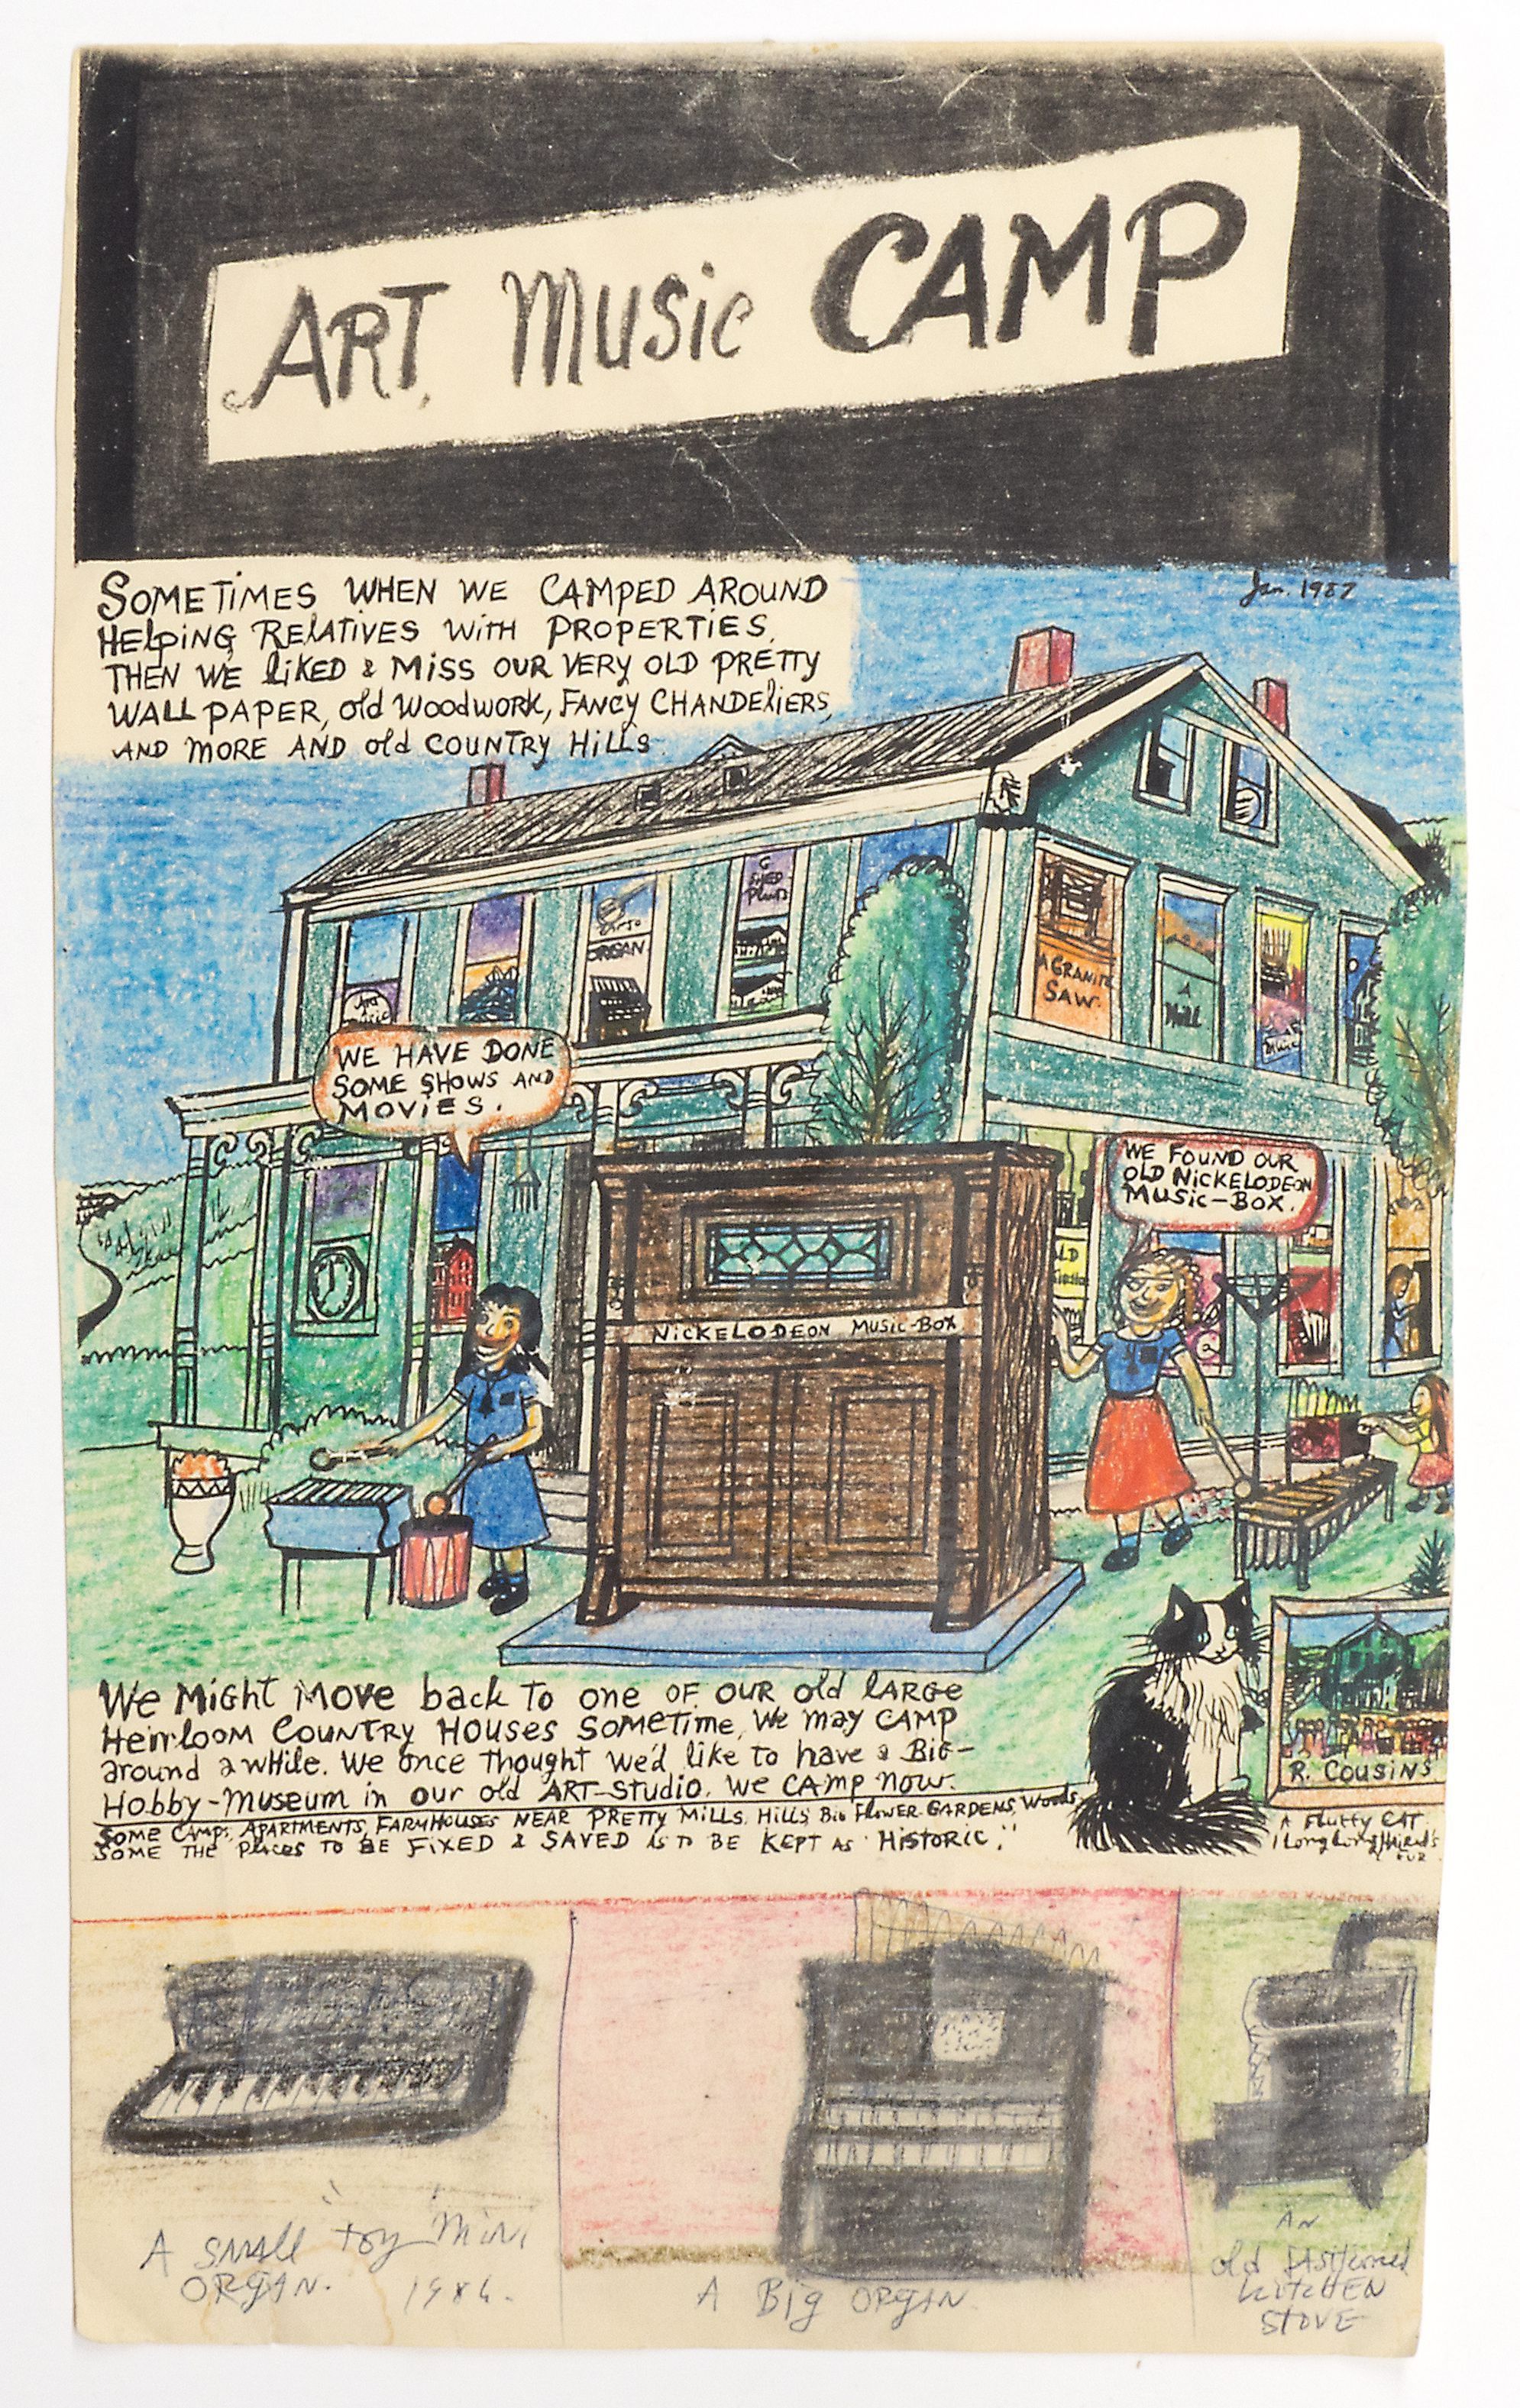 ART, Music CAMP
Jan. 1987
SOMETIMES WHEN WE CAMPED AROUND
HELPING RELATIVES WITH PROPERTIES,
THEN WE liKED & MISS OUR VERY OLD PRETTY
WALL PAPER, old WOODWORK, FANCY CHANDELIERS,
AND MORE AND old COUNTRY HILLS.
G
SHED
ORGAN
A GRANITE
SAW.
A
Mill
Art
Music
Music
WE HAVE DONE
SOME SHOWS AND
MOVIES.
WE FOUND OUR
OLD NICKELODEON
MUSIC-BOX.
NICKELODEON MUSIC-BOX
We Might Move back To one OF OUR old LARGE
Heirloom COUNTRY HOUSES SOMETIME, We may CAMP
around a while. We once Thought we'd like to have a BIG-
HOBBY-MUSEUM in our old ART-STUDIO. We CAMP now.
SOME CAMPS, APARTMENTS, FARMHOUSES NEAR PRETTY MILLS, HILLS, BIG FLOWER-GARDENS, Woods,
SOME THE PLACES TO BE FIXED & SAVED IS TO BE KEPT AS "HISTORIC."
R. COUSINS
A Fluffy CAT
A SMALL "Toy" Mini
ORGAN. 1986.
A Big ORGAN.
AN
old FASHIONED
KITCHEN
STOVE